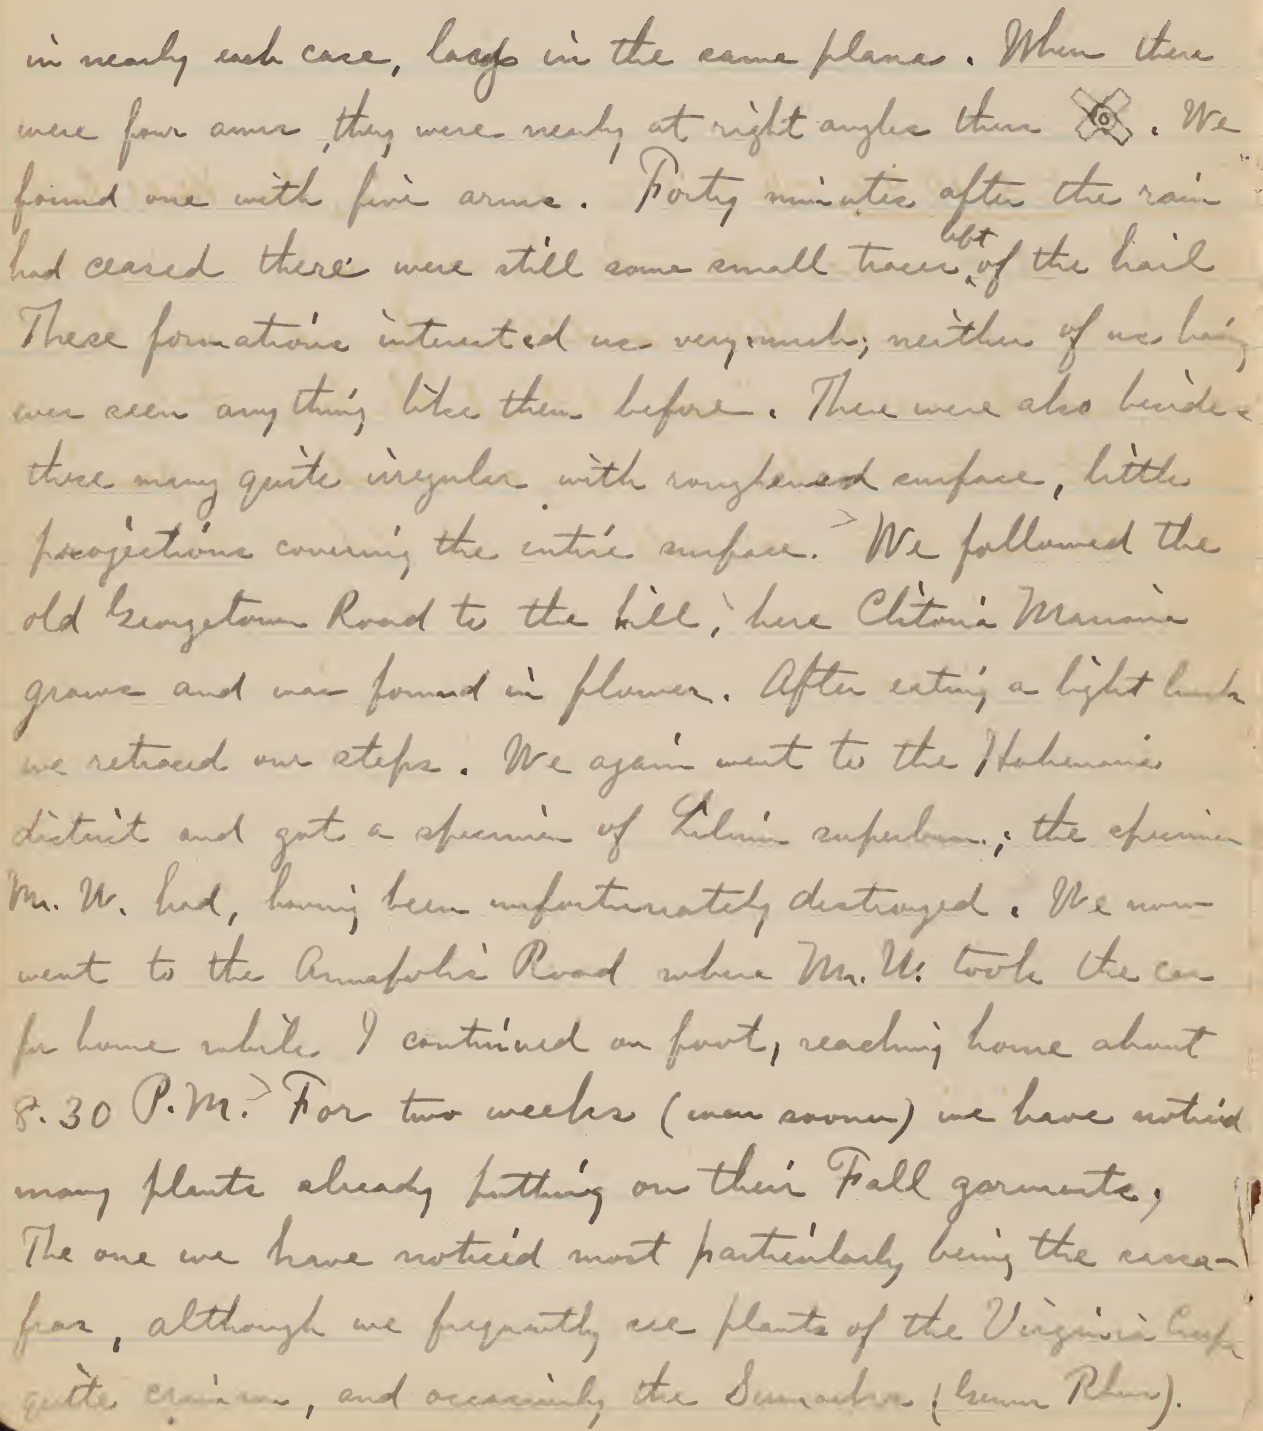 in nearly each case, lay in the same plane. When there
were four arms, they were nearly at right angles thus . We
found one with five arms. Forty minutes after the rain
had ceased there were still some small traces left of the hail
These formations interested us very much; neither of us having
ever seen any thing like them before. There were also besides
these many quite irregular with roughened surface, little
projections covering the entire surface. We followed the
old Georgetown Road to the hill; here Clitoria Mariana
grows and was found in flower. After eating a light lunch
we retraced our steps. We again went to the
district and got a specimen of Lilium superbum; the specimen
Mr. W. had, having been unfortunately destroyed. We now
went to the Annapolis Road where Mr. W. took the car
for home while I continued on foot, reaching home about
8.30 P.M. For two weeks (even sooner) we have noticed
many plants already putting on their Fall garments,
The one we have noticed most particularly being the sassa-
fras, although we frequently see plants of the Virginia Creeper
quite crimson, and occasionally the Sumachs (Genus Rhus).